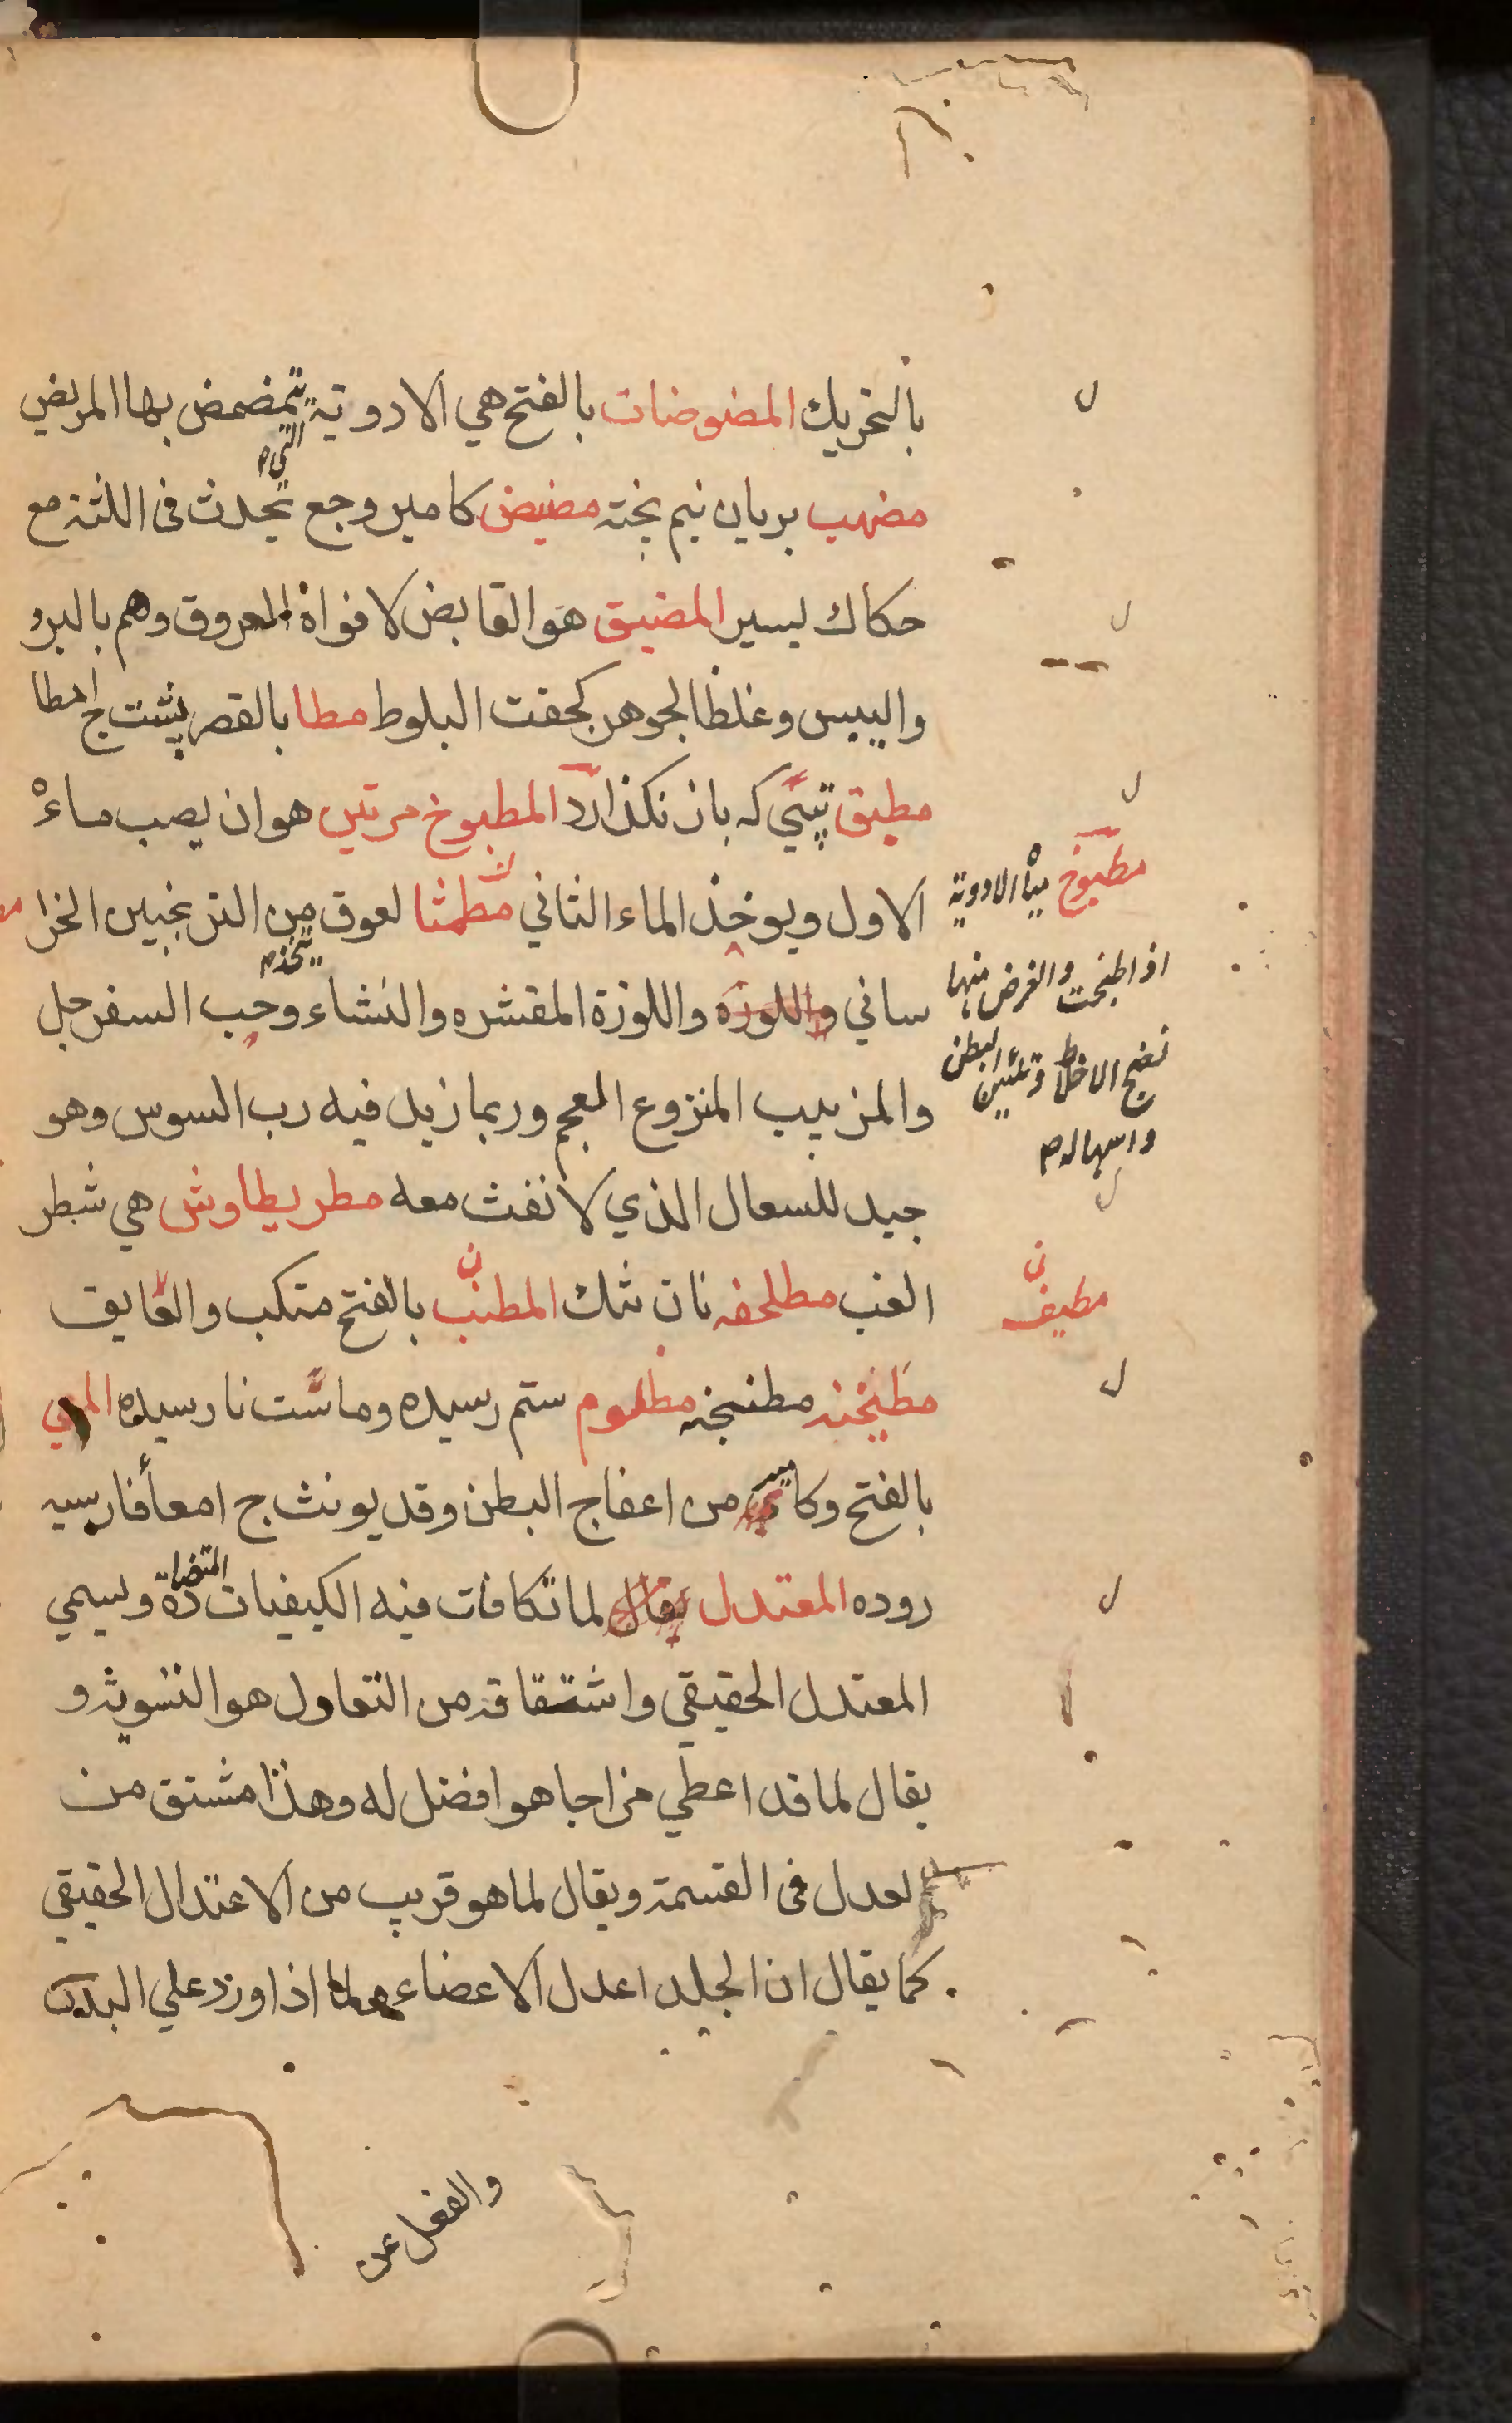 بالتحريك المضوضات بالفتح هي الادوية التي يتمضمض بها المريض
مضهب بريان نيم پخته مضيض كامير وجع يحدث في اللثة مع
حكاك يسير المضيق هو القابض لافواه العروق وهم بالبرو
واليبس وغلظ الجوهر كجفت البلوط مطا بالقصر پشت ج امطا
مطبق تپي كه باز نكذارد المطبوخ مرتين هو ان يصب ماءه
الاول ويوخذ الماء الثاني مطمثا لعوق يتخذ من الترنجبين الخرا
ساني واللوزه واللوزة المقشره والنشاء وحب السفرجل
والمزبيب المنزوع العجم وربما زيل فيه رب السوس وهو
جيد للسعال الذي لا نفث معه مطريطاوش هي شطر
الغب مطلحفه نان تنك المطنب بالفتح متكب والعايق
مطنخنه مطنجنه مظلوم ستم رسيده وماست نارسيده المعي
بالفتح وكامير من اعفاج البطن وقد يونث ج امعأ فارسيه
روده المعتدل يقال لما تكافات فيه الكيفيات المتضادة ويسمي
المعتدل الحقيقي واشتقاقه من التعاول هو التسويه و
يقال لما قد اعطي مزاجا هو افضل له وهذا مشتق من
لعدل في القسمة ويقال لما هو قريب من الاعتدال الحقيقي
كما يقال ان الجلد اعدل الاعضاء اذا ورد علي البدن
مطبوخ مياه الادوية
اذا طبخت والغرض منها
نضج الاخلاط وتليين البطن
واسهاله
مطيف
والفعل عن